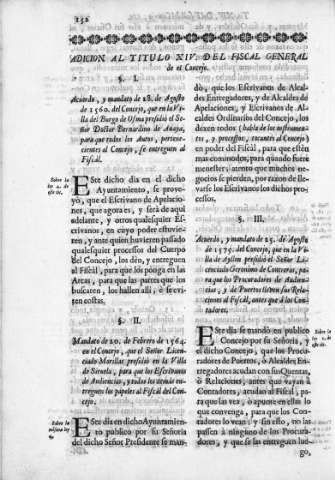 232
ADICION AL TITULO XIV. DEL FISCAL GENERAL
de el Concejo.
§. I.
Acuerdo, y mandato de 18. de Agosto
de 1560. del Concejo, que en la Vi-
lla del Burgo de Osma presidiò el Se-
ñor Doctor Bernardino de Anaya,
para que todos los Autos, pertene-
cientes al Concejo, se entreguen al
Fiscal.
Este dicho dia en el dicho
Ayuntamiento, se prove-
yò, que el Escrivano de Apelacio-
nes, que agora es, y serà de aqui
adelante, y otros qualesquier Es-
crivanos, en cuyo poder estuvie-
ren, y ante quien huvieren passado
qualesquier processos del Cuerpo
del Concejo, los dèn, y entreguen
al Fiscal, para que los ponga en las
Arcas, para que las partes que los
buscaren, los hallen alli, è se evi-
ten costas.
§. II.
Mandato de 20. de Febrero de 1564.
en el Concejo, que el Señor Licen-
ciado presidiò en la Villa
de Siruela, para que los Escrivanos
de Audiencias, y todos los demàs en-
treguen los papeles al Fiscal del Con-
cejo.
Este dia en dicho Ayuntamien-
to publico por su Señoria
del dicho Señor Presidente se man-
dò, que los Escrivanos de Alcal-
des Entregadores, y de Alcaldes de
Apelaciones, y Escrivanos de Al-
caldes Ordinarios del Concejo, los
dexen todos (habla de los instrumen-
tos, y processos, tocantes al Concejo)
en poder del Fiscal, para que estèn
mas comodamente, para quando fuere
necessario; atento que muchos ne-
gocios se pierden, por razon de lle-
varse los Escrivanos los dichos pro-
cessos.
§. III.
Acuerdo, y mandato de 25. de Agosto
de 1575. del Concejo, que en la Vi-
lla de Ayllon presidiò el Señor Li-
cenciado Geronimo de Contreras, pa-
ra que los Procuradores de Audien-
cias, y de Puertos dèn sus Rela-
ciones al Fiscal, antes que à los Con-
tadores.
Este dia se mandò en publico
Concejo por su Señoria, y
el dicho Concejo, que los Procura-
dores de Puertos, ò Alcaldes En-
tregadores acudan con sus Quentas,
ò Relaciones, antes que vayan à
Contadores, acudan al Fiscal, pa-
ra que las vea, ò apunte en ellas lo
que convenga, para que los Con-
tadores lo vean; y sin esto, no las
passen à ninguno de los Procura-
dores, y que se las entreguen lue-
go,